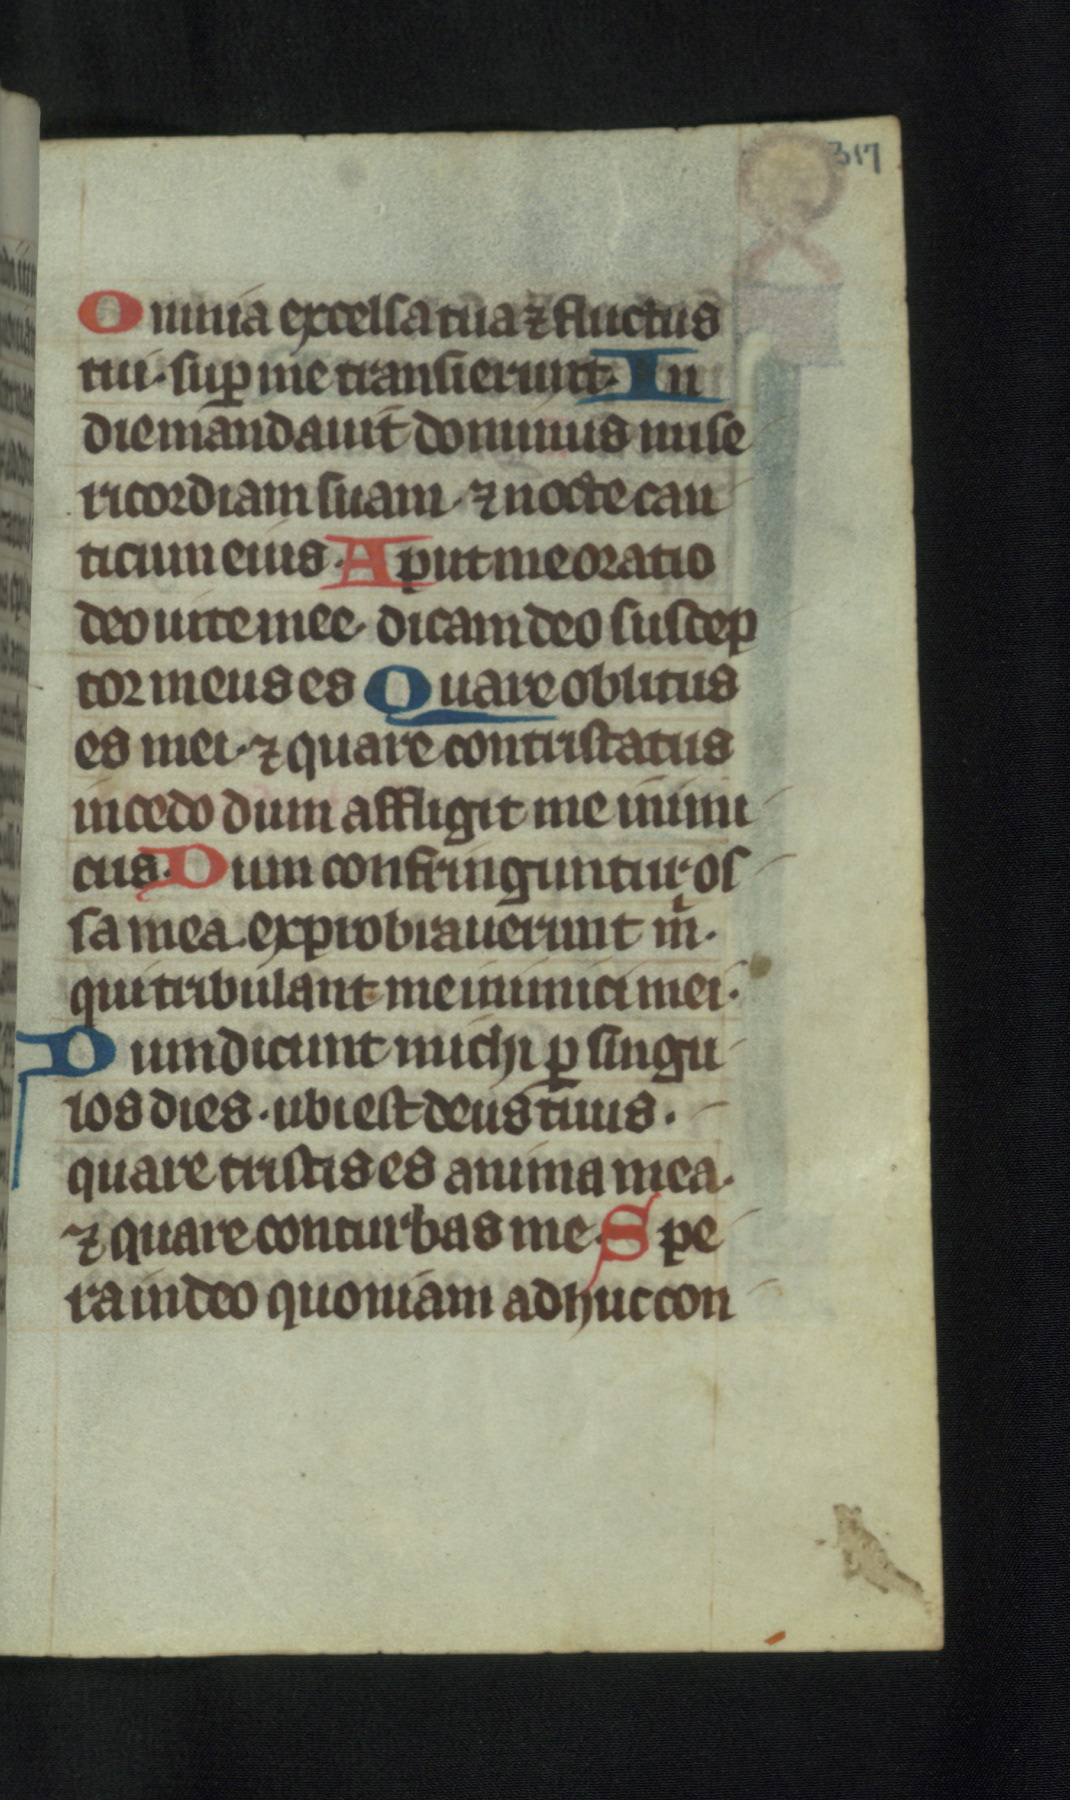 317
Omnia excelsa tua ⁊ fluctus
tui· sup̱ me transierunt· In
die mandauit dominus mise
ricordiam suam· ⁊ nocte can
ticum eius· Aput me oratio
deo uite mee· dicam deo suscep
tor meus es Quare oblitus
es mei· ⁊ quare contristatus
incedo dum affligit me inimi
cus· Dum confringuntur os
sa mea· exprobrauerunt m̄·
qui tribulant me inimici mei·
Dum dicunt michi ꝑ singu
los dies· ubi est deus tuus·
quare tristis es anima mea·
⁊ quare conturbas me· Spe
ra in deo quoniam adhuc con